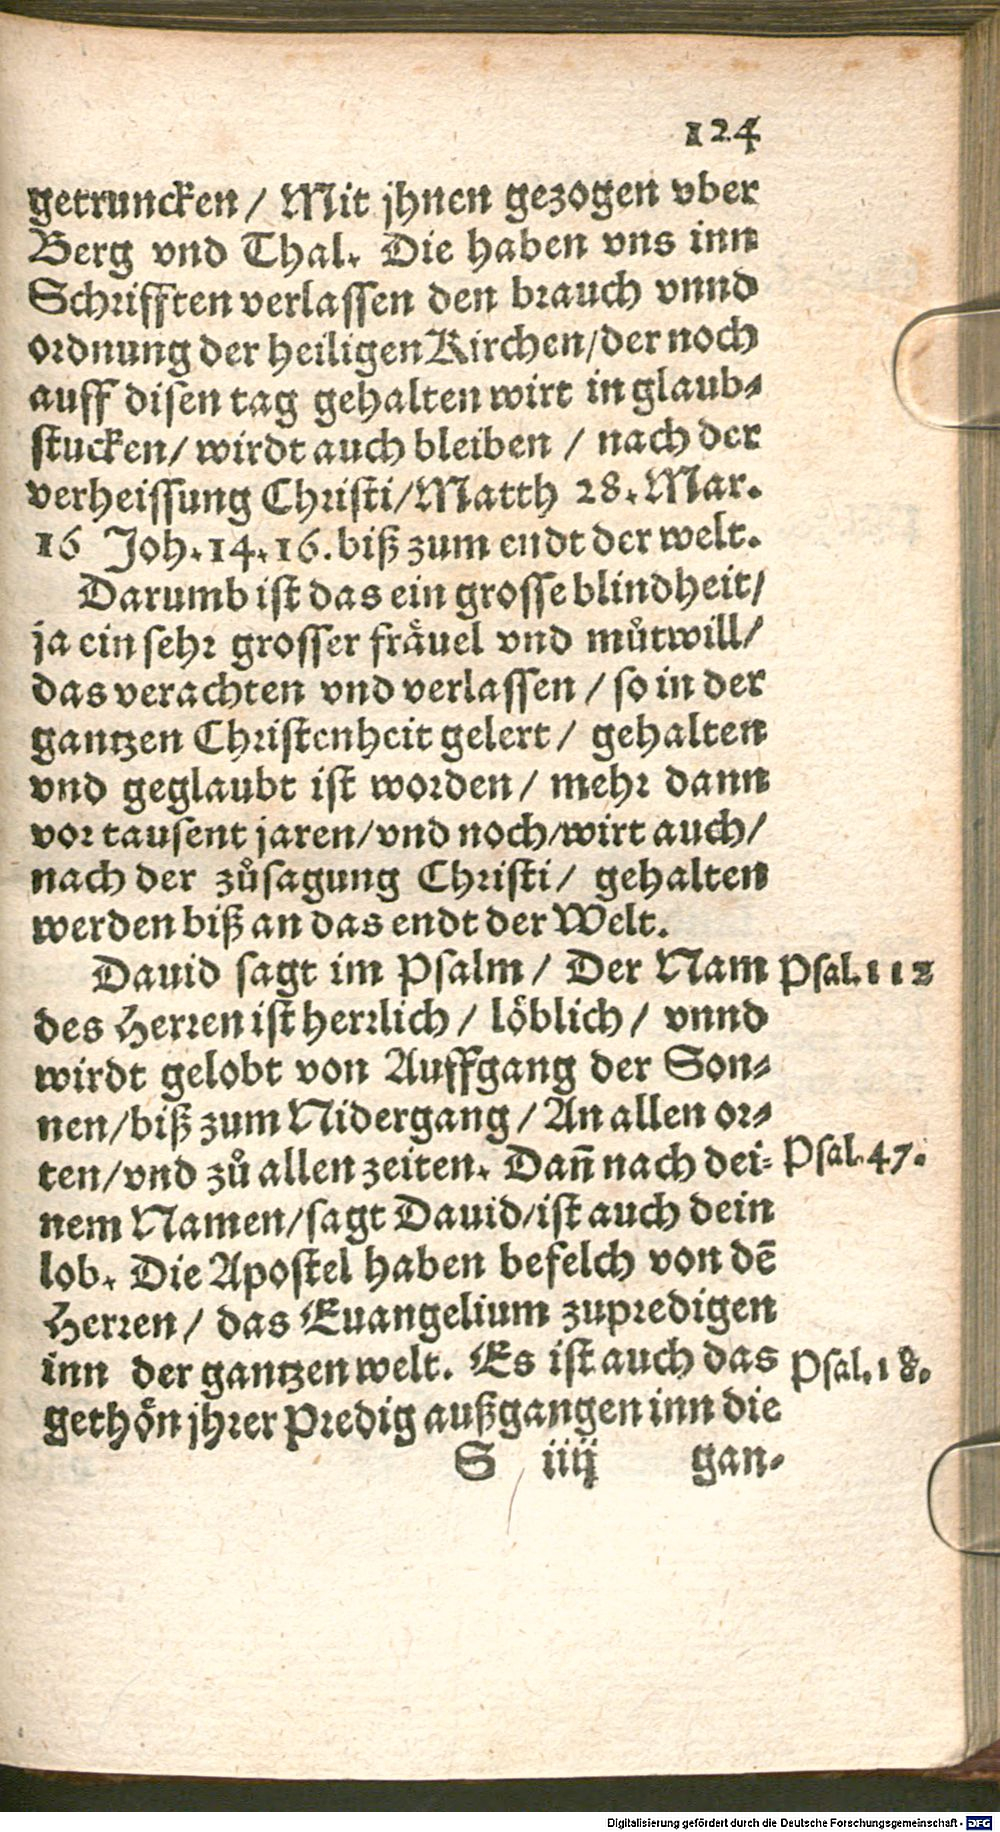 124
getruncken / Mit jhnen gezogen vber
Berg vnd Thal. Die haben vns inn
Schrifften verlassen den brauch vnnd
ordnung der heiligen Kirchen/der noch
auff disen tag gehalten wirt in glaub-
stucken/ wirdt auch bleiben / nach der
verheissung Christi/Matth 28. Mar.
16 Joh. 14. 16. biß zum endt der welt.
Darumb ist das ein grosse blindheit/
ja ein sehr grosser fräuel vnd můtwill/
das verachten vnd verlassen / so in der
gantzen Christenheit gelert / gehalten
vnd geglaubt ist worden / mehr dann
vor tausent jaren/vnd noch/wirt auch/
nach der zůsagung Christi/ gehalten
werden biß an das endt der Welt.
Dauid sagt im Psalm / Der Nam Psal. 112
des Herren ist herrlich / löblich / vnnd
wirdt gelobt von Auffgang der Son-
nen/biß zum Nidergang / An allen or-
ten/vnd zů allen zeiten. Dañ nach dei- Psal. 47.
nem Namen/sagt Dauid/ist auch dein
lob. Die Apostel haben befelch von dē
Herren / das Euangelium zupredigen
inn der gantzen welt. Es ist auch das Psal. 18.
gethön jhrer Predig außgangen inn die
S iiij gan-
Digitalisierung gefördert durch die Deutsche Forschungsgemeinschaft - DFG